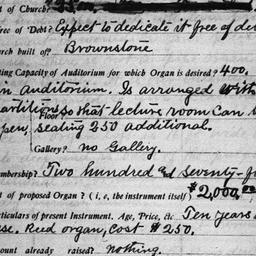 t of Church?
ree of Debt? Expect to dedicate it free of de
rch built of? Brownstone
ting Capacity of Auditorium for which Organ is desired? 400.
in auditorium. Is arranged with
partitions so that lecture room can b
Floor
pen, seating 250 additional.
Gallery? no Gallery.
mbership? Two hundred and seventy-fi
t of proposed Organ? (i, e, the instrument itself) $2,000.00
rticulars of present Instrument. Age, Price, etc. Ten years
se. Reed organ, cost $250.
ount already raised? nothing.